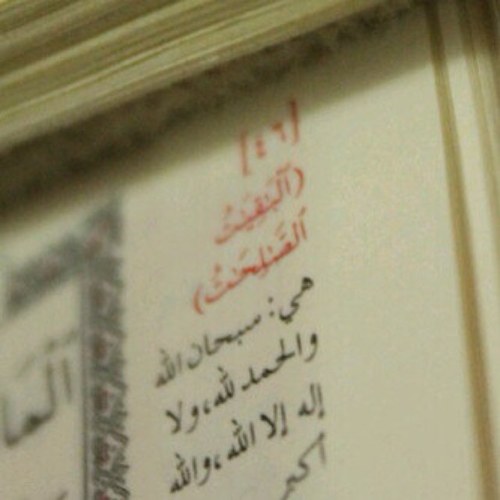 [٤٦]
(ٱلۡبَٰقِيَٰتُ
ٱلصَّٰلِحَٰتُ)
هي: سبحان الله
والحمد لله، ولا
إله إلا الله، والله
أكبر